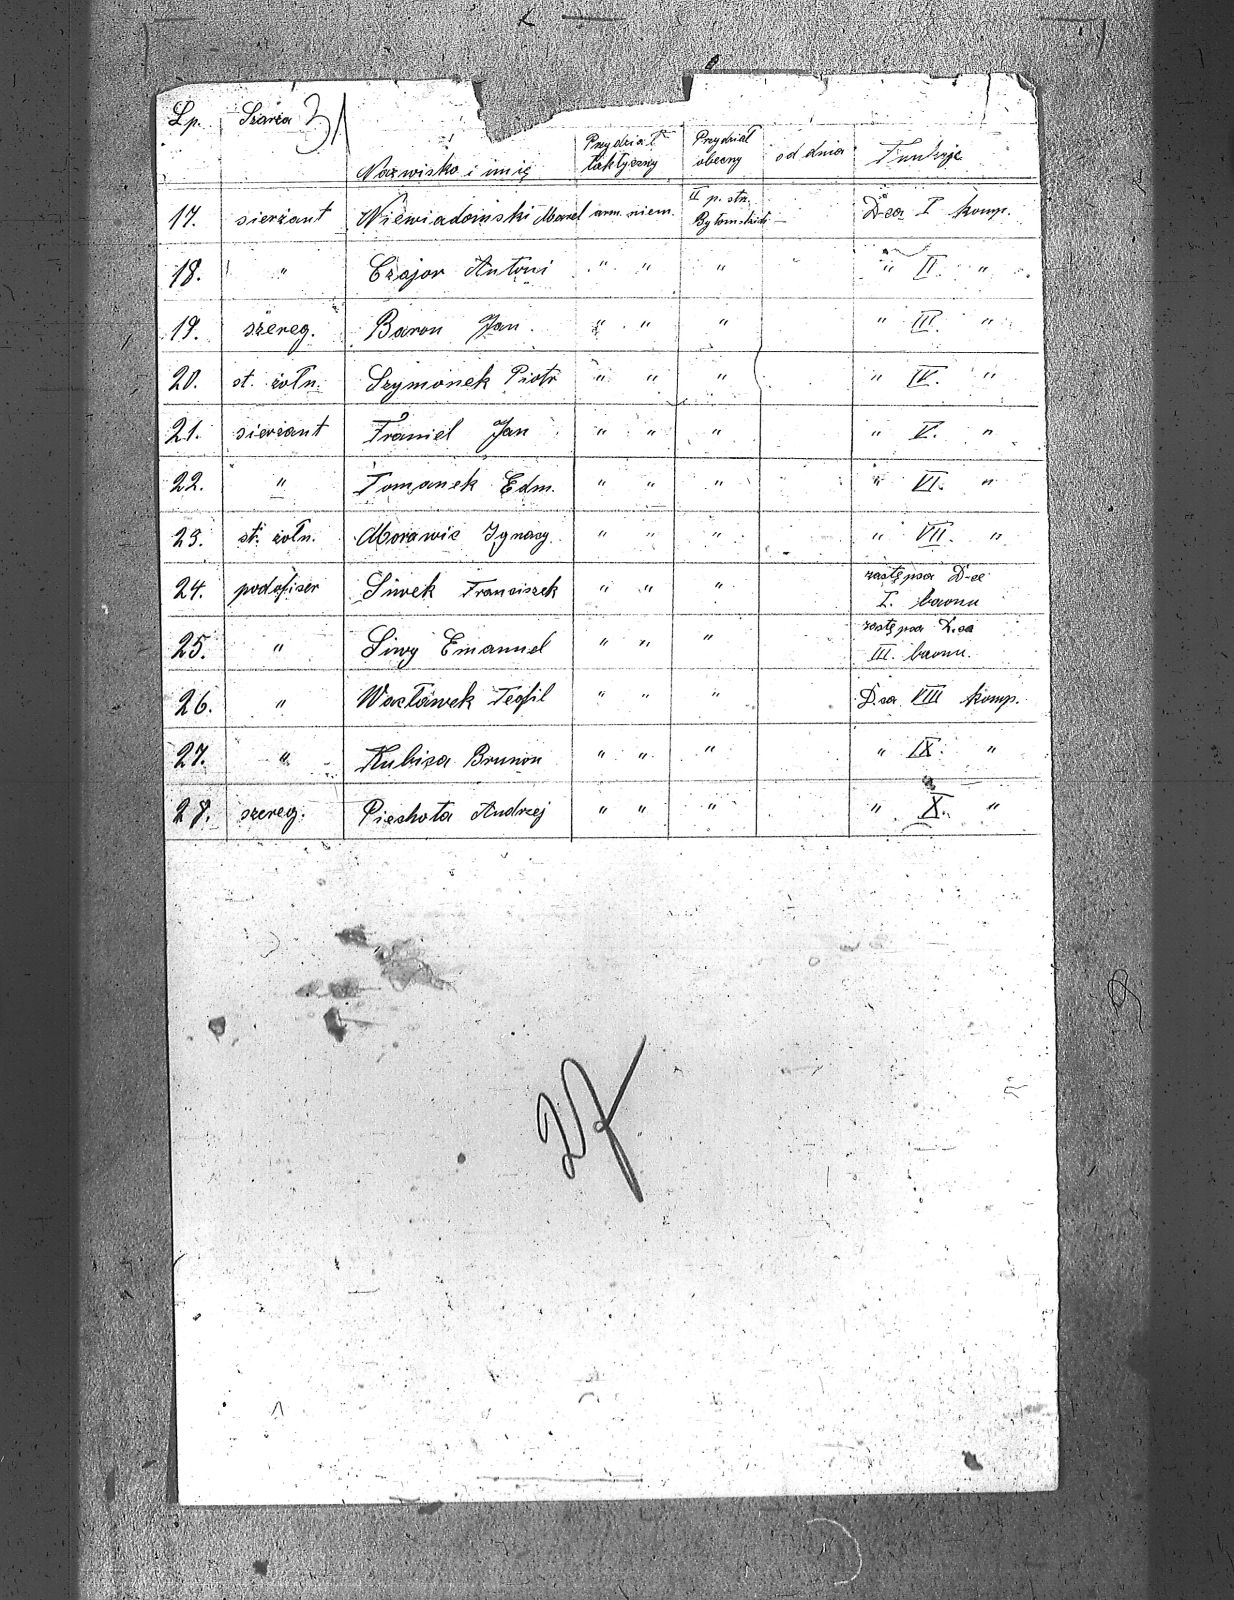 Lp. Szarża 31
Nazwisko i imię Przydział taktyczny Przydział obecny od dnia Funkcje
17. sierżant Niewiadomski arm. niem. II p. str. Bytomskich — D-ca I komp.
18. " Czajor Antoni " " " " II. "
19. szereg. Baron Jan. " " " " III. "
20. st. żołn. Szymonek Piotr " " " " IV. "
21. sierżant Franiel Jan " " " " V. "
22. " Tomanek Edm. " " " " VI. "
23. st. żołn. Morawic Ignacy. " " " " VII. "
24. podoficer Siwek Franciszek " " " zastępca D-ce I. baonu
25. " Siwy Emanuel " " " zastępca D.ca III. baonu.
26. " Wacławek Teofil " " " D.ca VIII komp.
27. " Kubica Brunon " " " " IX. "
28. szereg. Piechota Andrzej " " " " X. "